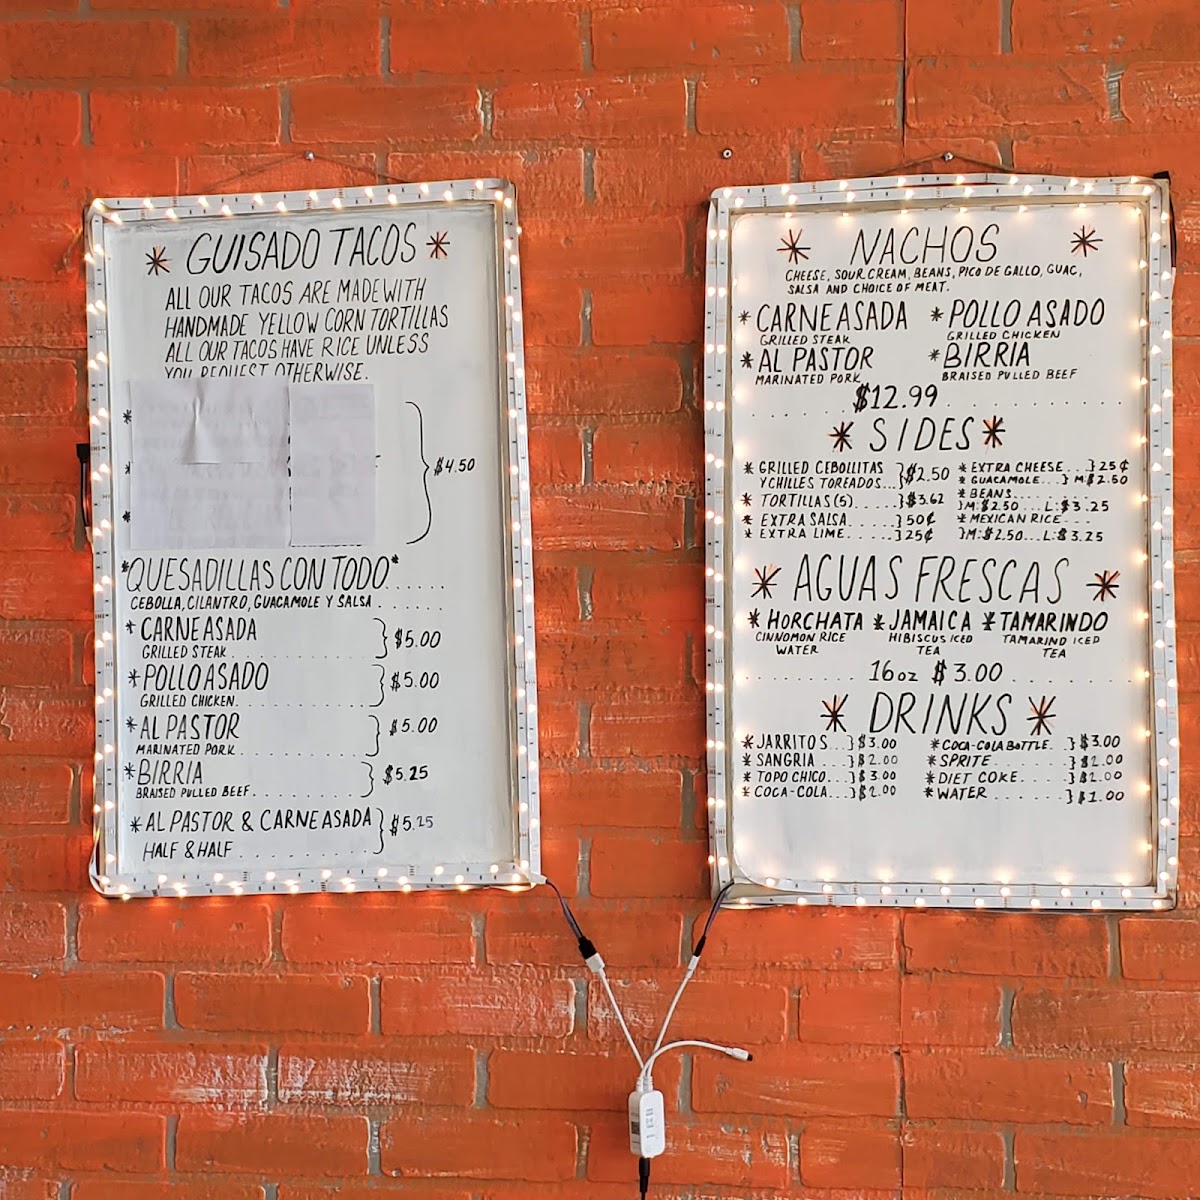 GUISADO TACOS
ALL OUR TACOS ARE MADE WITH
HANDMADE YELLOW CORN TORTILLAS
ALL OUR TACOS HAVE RICE UNLESS
YOU REQUEST OTHERWISE.
$4.50
*QUESADILLAS CON TODO*......
CEBOLLA, CILANTRO, GUACAMOLE Y SALSA ......
* CARNE ASADA } $5.00
GRILLED STEAK
* POLLO ASADO } $5.00
GRILLED CHICKEN
* AL PASTOR } $5.00
MARINATED PORK
* BIRRIA } $5.25
BRAISED PULLED BEEF
* AL PASTOR & CARNE ASADA } $5.25
HALF & HALF
NACHOS
CHEESE, SOUR CREAM, BEANS, PICO DE GALLO, GUAC,
SALSA AND CHOICE OF MEAT.
* CARNE ASADA * POLLO ASADO
GRILLED STEAK GRILLED CHICKEN
* AL PASTOR * BIRRIA
MARINATED PORK BRAISED PULLED BEEF
$12.99
SIDES
* GRILLED CEBOLLITAS
Y CHILLES TOREADOS... } $2.50
* TORTILLAS (5)..... } $3.62
* EXTRA SALSA..... } 50¢
* EXTRA LIME..... } 25¢
* EXTRA CHEESE... } 25¢
* GUACAMOLE... } M:$2.50
* BEANS...
} M:$2.50... L:$3.25
* MEXICAN RICE...
} M:$2.50... L:$3.25
AGUAS FRESCAS
* HORCHATA * JAMAICA * TAMARINDO
CINNOMON RICE HIBISCUS ICED TAMARIND ICED
WATER TEA TEA
16oz $3.00
DRINKS
* JARRITOS...} $3.00
* SANGRIA...} $2.00
* TOPO CHICO...} $3.00
* COCA-COLA...} $2.00
* COCA-COLA BOTTLE. } $3.00
* SPRITE...} $2.00
* DIET COKE...} $2.00
* WATER...} $1.00